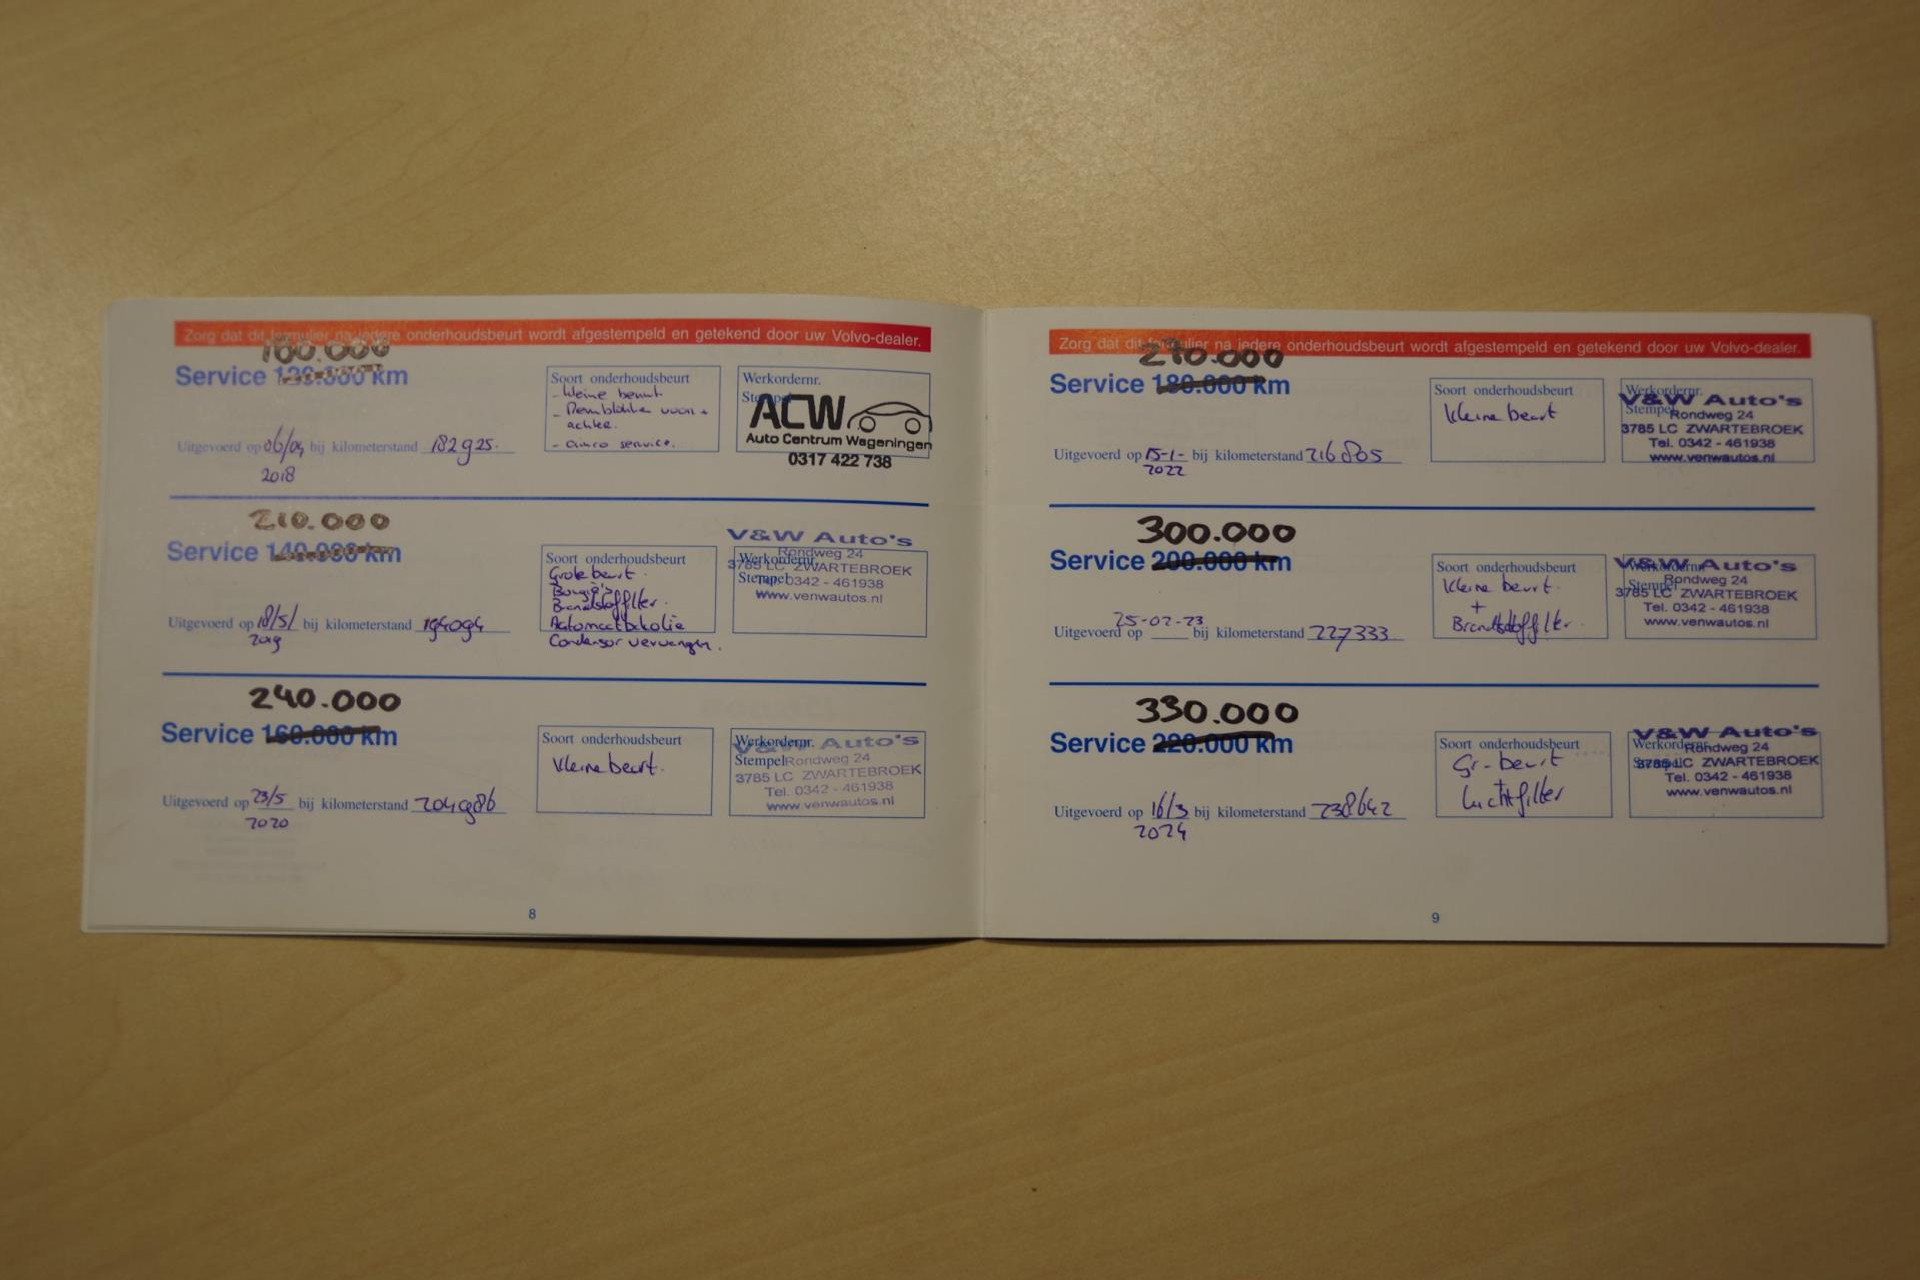 Zorg dat dit formulier na iedere onderhoudsbeurt wordt afgestempeld en getekend door uw Volvo-dealer.
180.000
Service 120.000 km
Soort onderhoudsbeurt
- kleine beurt
- Remblokken voor +
achter.
- airco service.
Werkordernr.
Stempel
ACW
Auto Centrum Wageningen
0317 422 738
Uitgevoerd op 06/04 bij kilometerstand 182925.
2018
210.000
Service 140.000 km
Soort onderhoudsbeurt
Grote beurt.
Bougie's
Brandstoffilter.
Automaatbakolie
Condensor vervangen.
V&W Auto's
Rondweg 24
Werkordernr.
3785 LC ZWARTEBROEK
Stempel
Tel. 0342 - 461938
www.venwautos.nl
Uitgevoerd op 18/5/ bij kilometerstand 194094
2019
240.000
Service 160.000 km
Soort onderhoudsbeurt
Kleine beurt.
Werkordernr.
V&W Auto's
Stempel
Rondweg 24
3785 LC ZWARTEBROEK
Tel. 0342 - 461938
www.venwautos.nl
Uitgevoerd op 23/5 bij kilometerstand 204986
2020
8
Zorg dat dit formulier na iedere onderhoudsbeurt wordt afgestempeld en getekend door uw Volvo-dealer.
270.000
Service 180.000 km
Soort onderhoudsbeurt
Kleine beurt
Werkordernr.
V&W Auto's
Stempel
Rondweg 24
3785 LC ZWARTEBROEK
Tel. 0342 - 461938
www.venwautos.nl
Uitgevoerd op 15-1- bij kilometerstand 216805
2022
300.000
Service 200.000 km
Soort onderhoudsbeurt
Kleine beurt.
+
Brandstoffilter.
Werkordernr.
V&W Auto's
Stempel
Rondweg 24
3785 LC ZWARTEBROEK
Tel. 0342 - 461938
www.venwautos.nl
25-02-23
Uitgevoerd op bij kilometerstand 227333
330.000
Service 220.000 km
Soort onderhoudsbeurt
Gr-beurt
Luchtfilter
V&W Auto's
Werkordernr.
Rondweg 24
Stempel
3785 LC ZWARTEBROEK
Tel. 0342 - 461938
www.venwautos.nl
Uitgevoerd op 16/3 bij kilometerstand 238642
2024
9